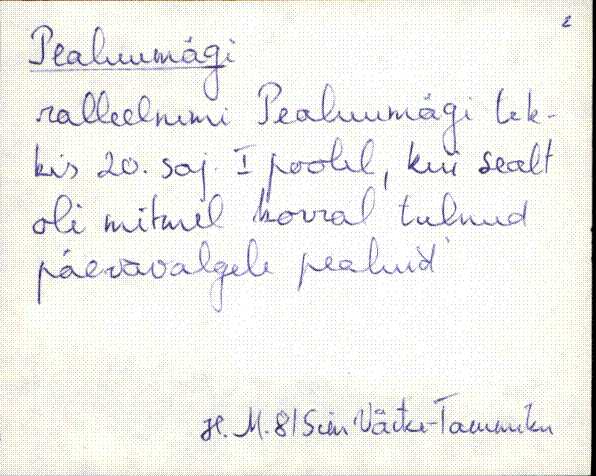 2
Pealuumägi
ralleelnimi Pealuumägi tek-
kis 20. saj. I poolel, kui sealt
oli mitmel korral tulnud
päevavalgele pealuid
H. M. 81 Sim Väike-Tammiku